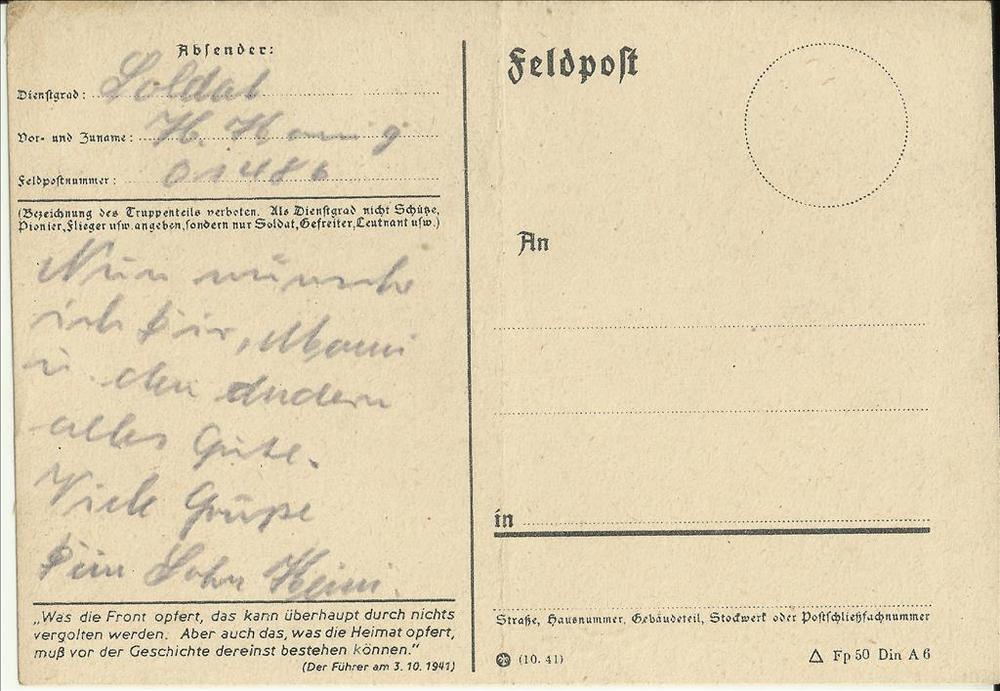 Absender:
Dienstgrad: Soldat
Vor- und Zuname: H. Hornig
Feldpostnummer: 01486
(Bezeichnung des Truppenteils verboten. Als Dienstgrad nicht Schütze,
Pionier, Flieger usw. angeben, sondern nur Soldat, Gefreiter, Leutnant usw.)
Nun wünsche
ich Dir, Mami
u. den andern
alles Gute.
Viele Grüße
Dein Sohn Heini.
„Was die Front opfert, das kann überhaupt durch nichts
vergolten werden. Aber auch das, was die Heimat opfert,
muß vor der Geschichte dereinst bestehen können.“
(Der Führer am 3. 10. 1941)
Feldpost
An
in
Straße, Hausnummer, Gebäudeteil, Stockwerk oder Postschließfachnummer
(10. 41)
Fp 50 Din A 6